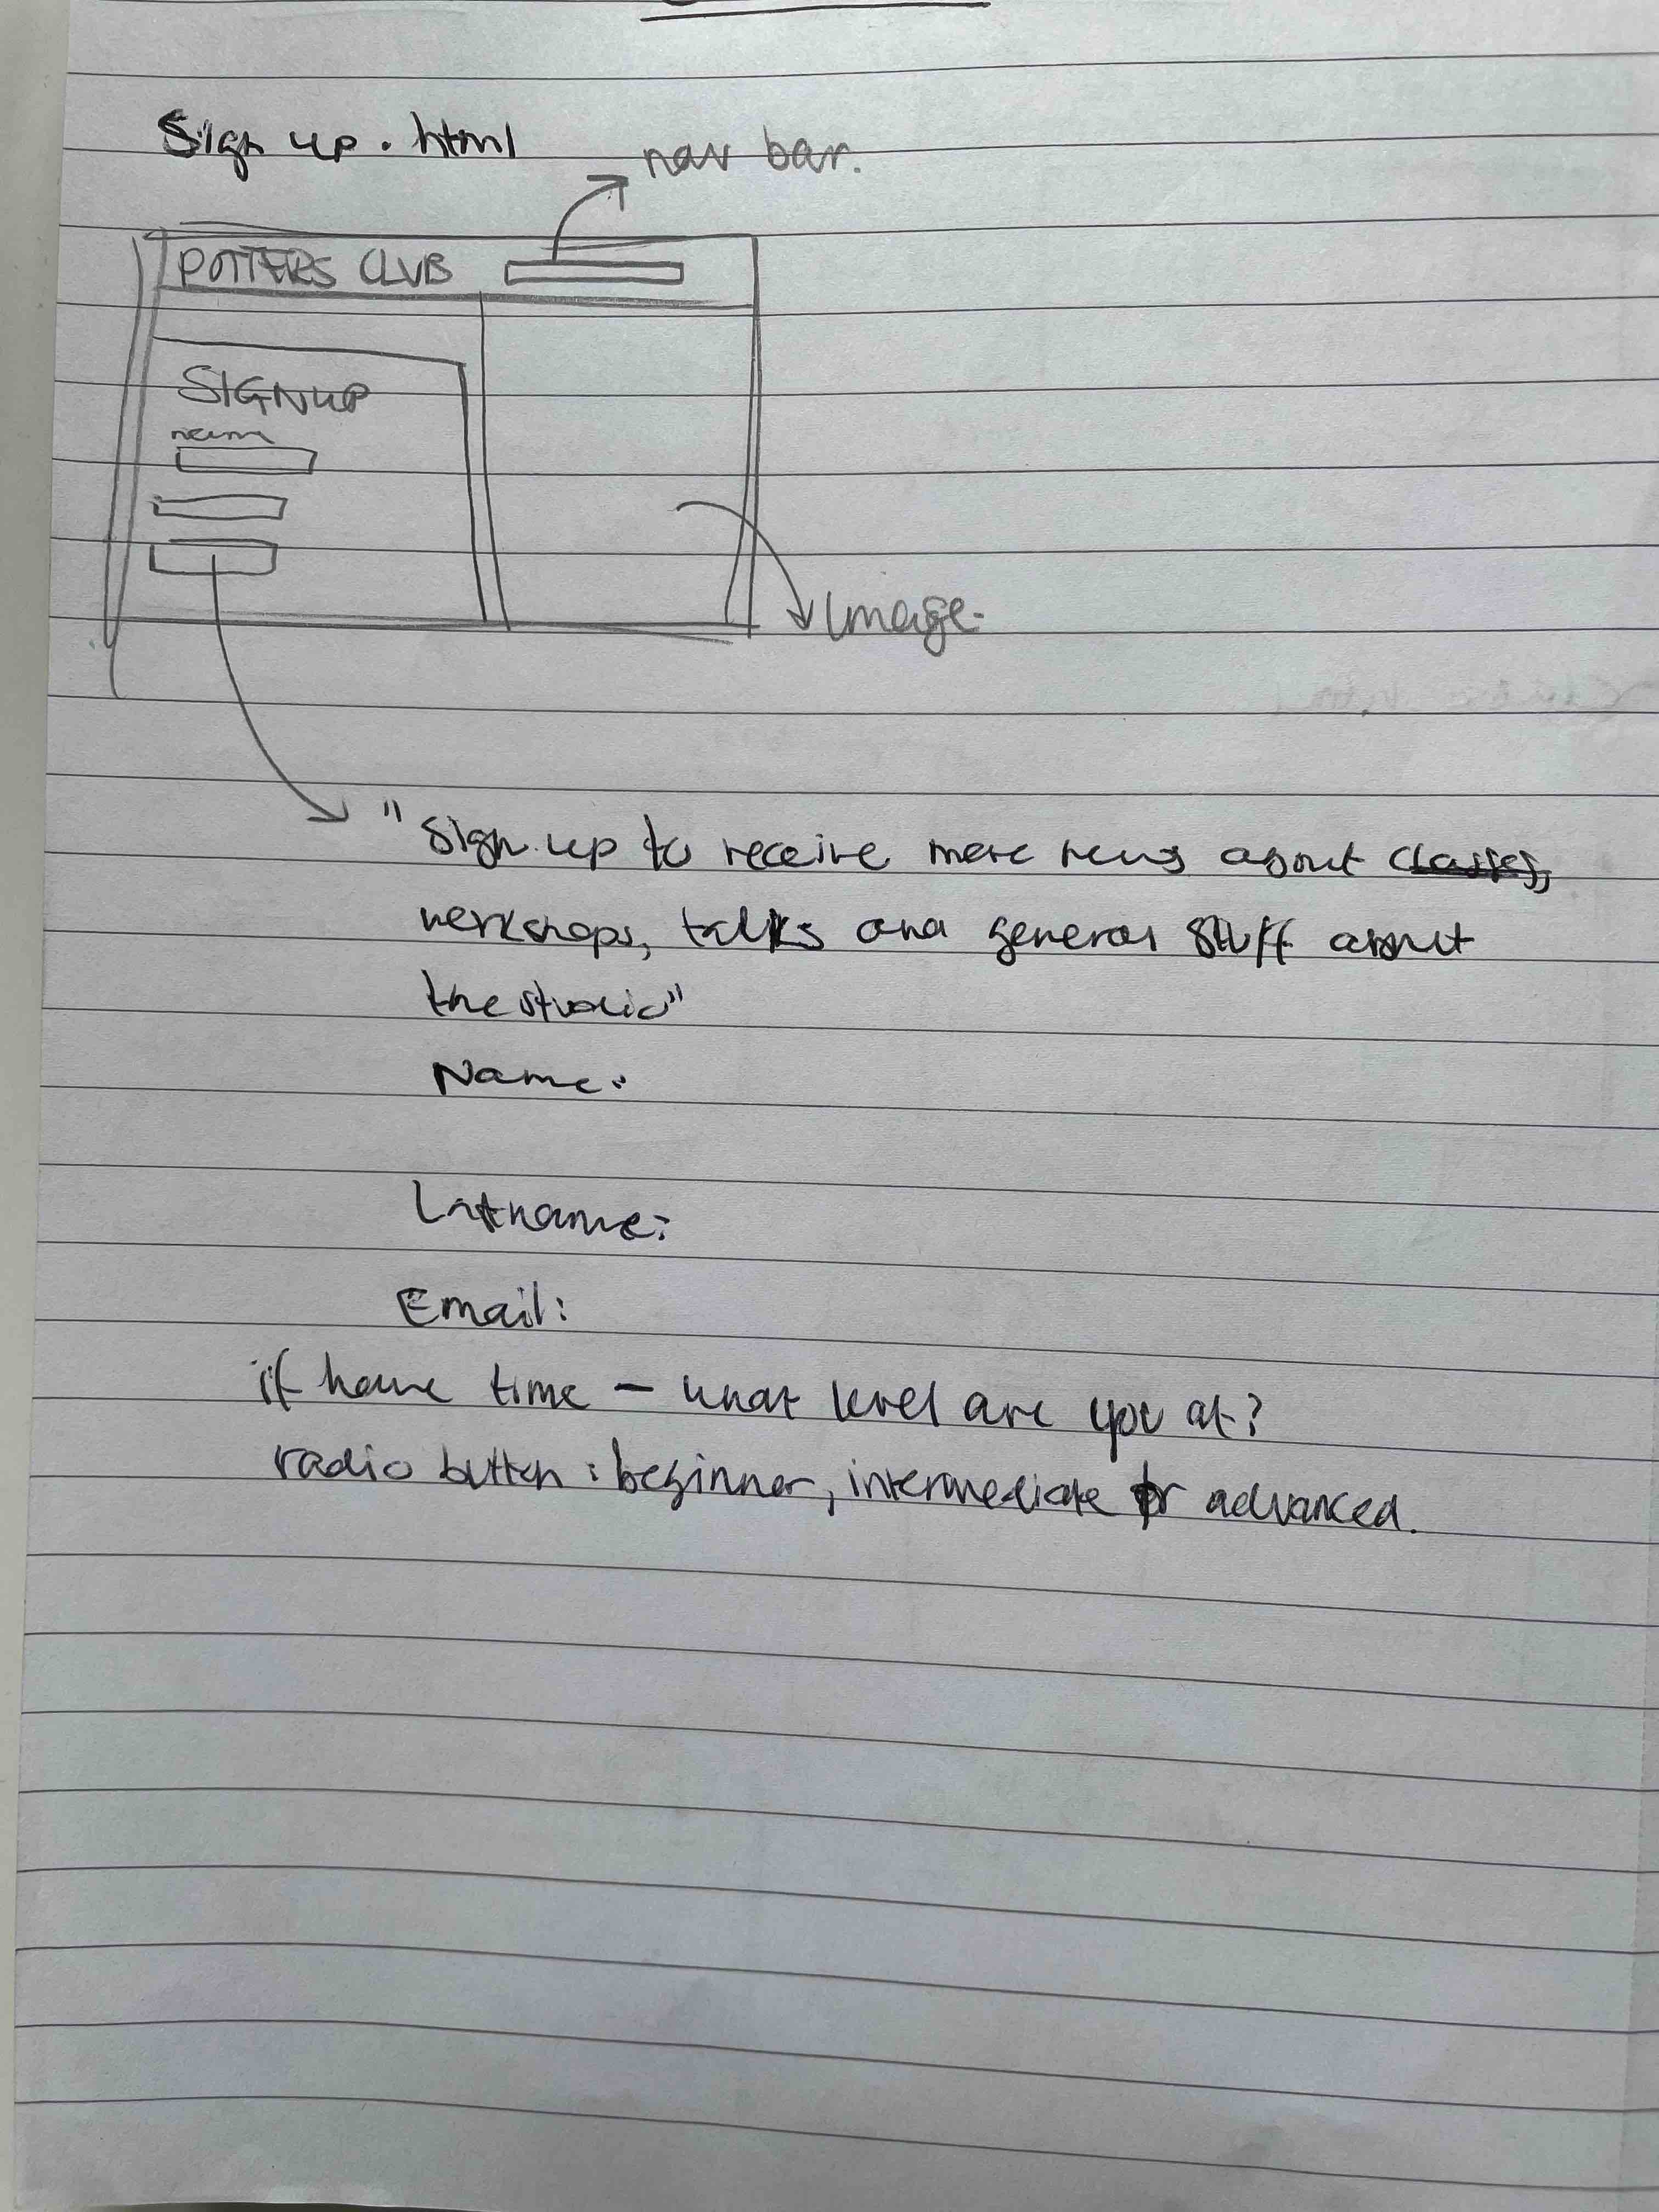 Sign up . html
nav bar.
POTTERS CLUB
SIGNUP
name
Image.
"Sign up to receive more news about classes,
workshops, talks and general stuff about
the studio"
Name:
Lastname:
Email:
if have time – what level are you at?
radio button : beginner, intermediate or advanced.